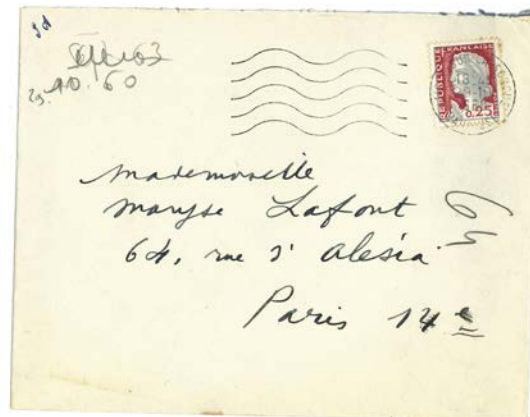 25.10.60
RÉPUBLIQUE FRANÇAISE
0.25
Mademoiselle
Maryse Lafont
64, rue d'Alésia
Paris 14e